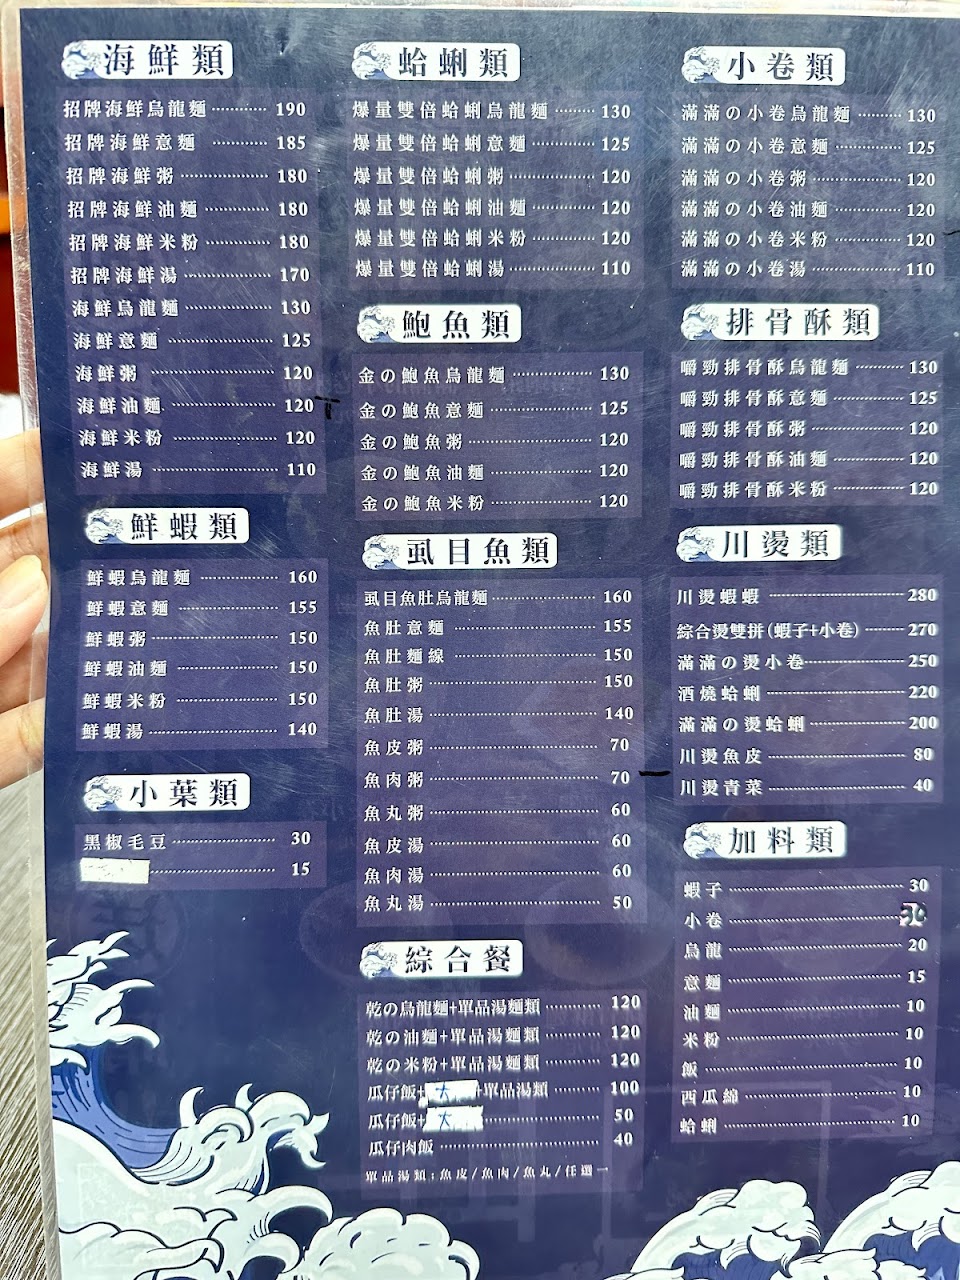 海鮮類
招牌海鮮烏龍麵 190
招牌海鮮意麵 185
招牌海鮮粥 180
招牌海鮮油麵 180
招牌海鮮米粉 180
招牌海鮮湯 170
海鮮烏龍麵 130
海鮮意麵 125
海鮮粥 120
海鮮油麵 120
海鮮米粉 120
海鮮湯 110
鮮蝦類
鮮蝦烏龍麵 160
鮮蝦意麵 155
鮮蝦粥 150
鮮蝦油麵 150
鮮蝦米粉 150
鮮蝦湯 140
小菜類
黑椒毛豆 30
15
蛤蜊類
爆量雙倍蛤蜊烏龍麵 130
爆量雙倍蛤蜊意麵 125
爆量雙倍蛤蜊粥 120
爆量雙倍蛤蜊油麵 120
爆量雙倍蛤蜊米粉 120
爆量雙倍蛤蜊湯 110
鮑魚類
金の鮑魚烏龍麵 130
金の鮑魚意麵 125
金の鮑魚粥 120
金の鮑魚油麵 120
金の鮑魚米粉 120
虱目魚類
虱目魚肚烏龍麵 160
魚肚意麵 155
魚肚麵線 150
魚肚粥 150
魚肚湯 140
魚皮粥 70
魚肉粥 70
魚丸粥 60
魚皮湯 60
魚肉湯 60
魚丸湯 50
綜合餐
乾の烏龍麵+單品湯麵類 120
乾の油麵+單品湯麵類 120
乾の米粉+單品湯麵類 120
瓜仔飯+大+單品湯類 100
瓜仔飯+大 50
瓜仔肉飯 40
單品湯類;魚皮/魚肉/魚丸/任選一
小卷類
滿滿の小卷烏龍麵 130
滿滿の小卷意麵 125
滿滿の小卷粥 120
滿滿の小卷油麵 120
滿滿の小卷米粉 120
滿滿の小卷湯 110
排骨酥類
嚼勁排骨酥烏龍麵 130
嚼勁排骨酥意麵 125
嚼勁排骨酥粥 120
嚼勁排骨酥油麵 120
嚼勁排骨酥米粉 120
川燙類
川燙蝦蝦 280
綜合燙雙拼(蝦子+小卷) 270
滿滿の燙小卷 250
酒燒蛤蜊 220
滿滿の燙蛤蜊 200
川燙魚皮 80
川燙青菜 40
加料類
蝦子 30
小卷 30
烏龍 20
意麵 15
油麵 10
米粉 10
飯 10
西瓜綿 10
蛤蜊 10